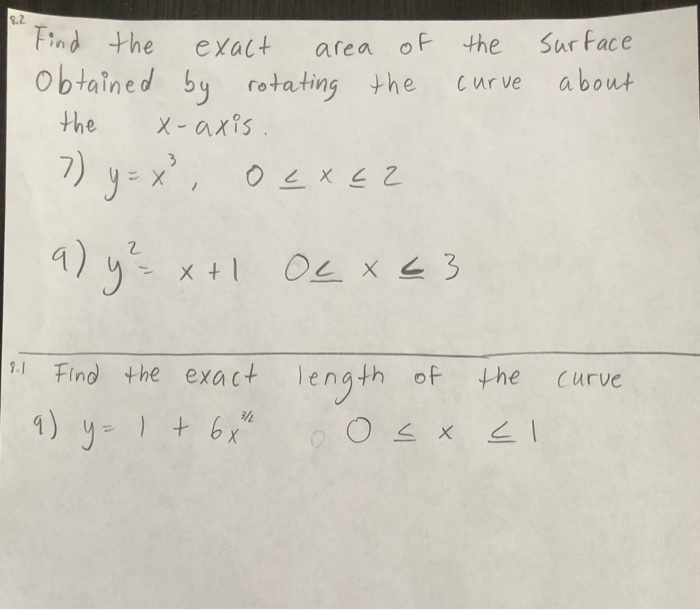 8.2
Find the exact area of the Surface
Obtained by rotating the curve about
the x-axis.
7) y = x³, 0 ≤ x ≤ 2
9) y² = x + 1 0 ≤ x ≤ 3
8.1 Find the exact length of the curve
9) y = 1 + 6x^3/2 0 ≤ x ≤ 1